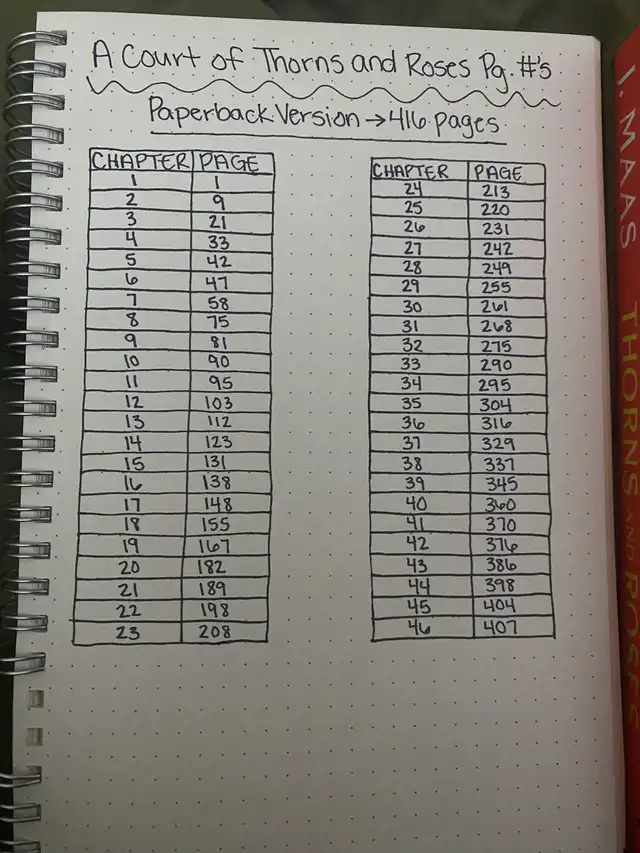 A Court of Thorns and Roses Pg. #'s
Paperback Version → 416 pages
CHAPTER PAGE
1 1
2 9
3 21
4 33
5 42
6 47
7 58
8 75
9 81
10 90
11 95
12 103
13 112
14 123
15 131
16 138
17 148
18 155
19 167
20 182
21 189
22 198
23 208
CHAPTER PAGE
24 213
25 220
26 231
27 242
28 249
29 255
30 261
31 268
32 275
33 290
34 295
35 304
36 316
37 329
38 337
39 345
40 360
41 370
42 376
43 386
44 398
45 404
46 407
J. MAAS
THORNS AND ROSES